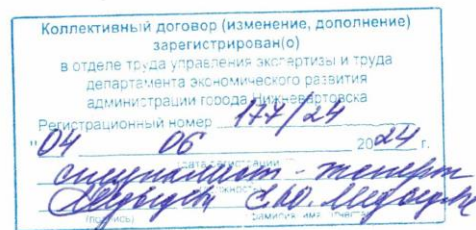 Коллективный договор (изменение, дополнение)
зарегистрирован(о)
в отделе труда управления экспертизы и труда
департамента экономического развития
администрации города Нижневартовска
Регистрационный номер 177/24
"04 06 2024 г.
(дата регистрации)
специалист - эксперт
(должность)
С.Ю.
(подпись) (фамилия, имя, отчество)